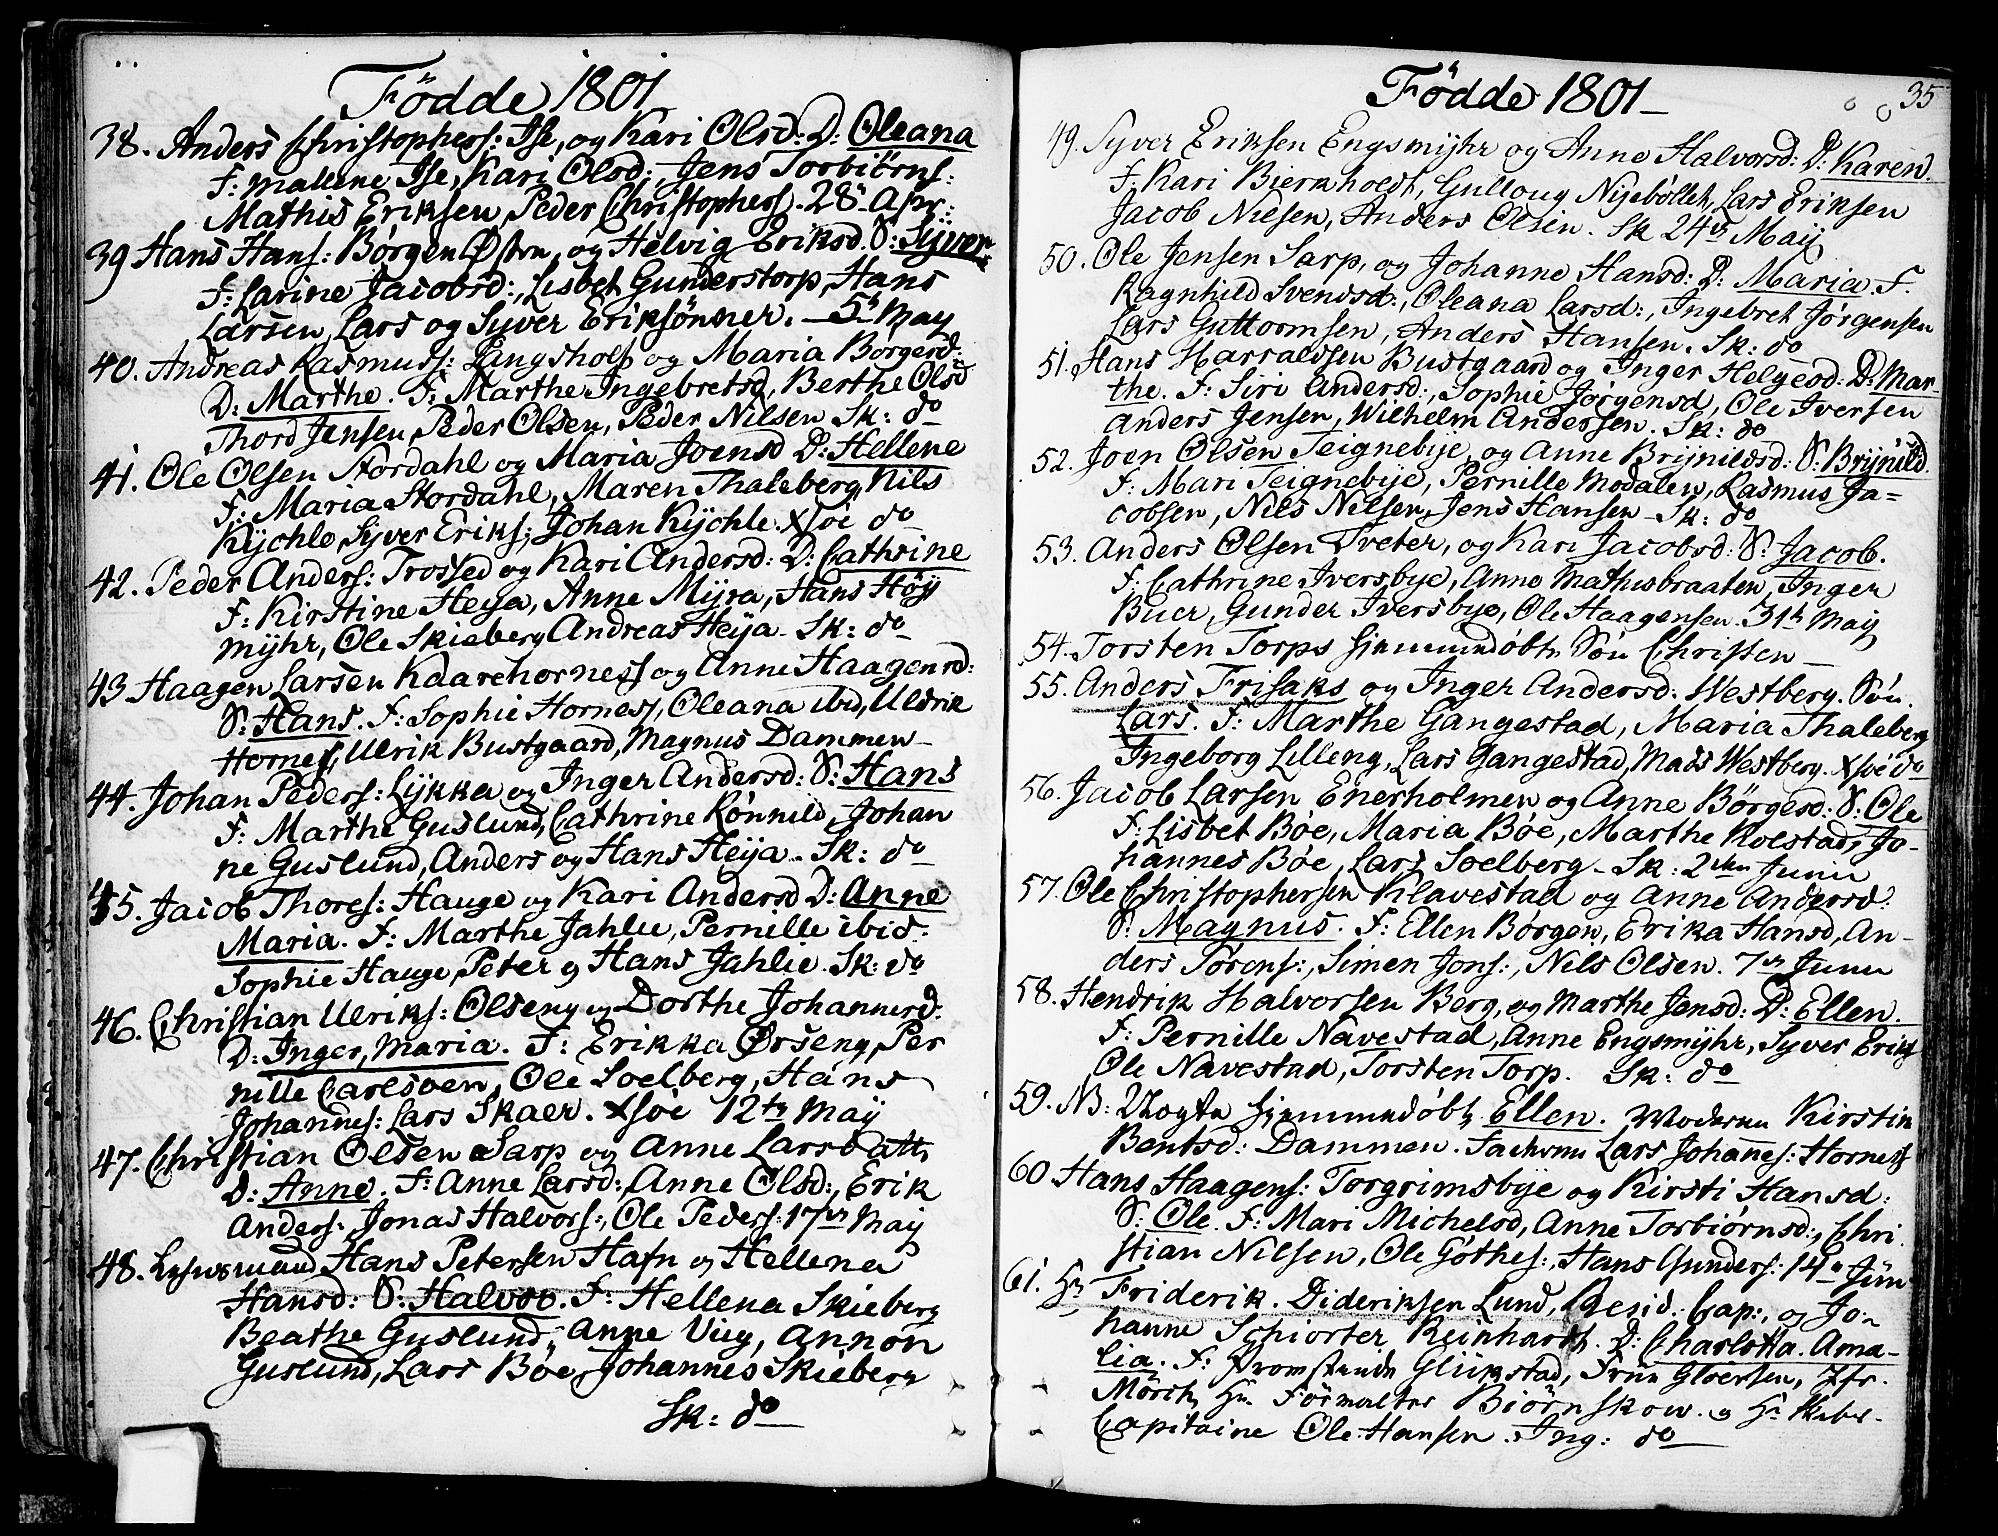 Födde 1801
38. Anders Christophers: Ise, og Kari Olsd: D: Oleana
F: Mallene Ise, Kari Olsd:, Jens Torbiörns:
Mathis Eriksen, Peder Christophers. 28de Apr:
39 Hans Hans: Børgen Østre, og Helvig Eriksd. S: Syver
F: Larine Jacobsd:, Lisbet Gunderstorp, Hans
Larsen, Lars og Syver Eriksönner. 5te May
40. Andreas Rasmuss: Langsholt og Maria Børgerd:
D: Marthe. F: Marthe Ingebretsd, Berthe Olsd
Thord Jensen, Peder Olsen, Peder Nilsen Sk: do
41. Ole Olsen Stordahl og Maria Joensd D: Hellene
F: Maria Stordahl, Maren Thaleberg, Nils
Kÿchle, Syver Eriks:, Johan Kÿchle. Xsöe do
42. Peder Anders: Trossed og Kari Andersd: D: Cathrine
F: Kirstine Heija, Anne Mÿra, Hans Höÿ
mÿhr, Ole Skieberg Andreas Heija. Sk: do
43 Haagen Larsen Kaarehorness og Anne Haagensd:
S: Hans. F: Sophie Horness, Oleana ibid, Uldrik
Horness, Ulrik Bustgaard, Magnus Dammen
44. Johan Peders: Lÿkka og Inger Andersd: S: Hans
F: Marthe Guslund, Cathrine Rønnild, Johan
ne Guslund, Anders og Hans Heija. Sk: do
45. Jacob Thores: Hauge og Kari Andersd D: Anne
Maria. F: Marthe Jahlie, Pernille ibid:
Sophie Hauge, Peter og Hans Jahlie. Sk: do
46. Christian Ulriks: Olseng og Dorthe Johannesd.
D: Inger, Maria. F: Erikka Ørseng, Per
nille Carlsoen, Ole Soelberg, Hans
Johannes: Lars Skaer. Xsöe 12te Maÿ
47. Christian Olsen Sarp og Anne Larsdatt
D: Anne. F: Anne Larsd:, Anne Olsd:, Erik
Anders: Jonas Halvors:, Ole Peders: 17de Maij
48. Hans Petersen Hafn og Hellena
Hansd: S: Halvor. F: Hellena Skieberg
Beathe Guslund, Anne Vieg, Annon
Guslund, Lars Böe, Johannes Skieberg
Sk: do
Födde 1801
35
49. Syver Eriksen Engsmijhr og Anne Halvorsd: D: Karen.
F: Kari Biernholdt, Gulloug Nijebøllet, Lars Eriksen
Jacob Nielsen, Anders Olsen. Sk 24de Maij
50. Ole Jensen Sarp, og Johanne Hansd: D: Maria. F.
Ragnhild Svendsd:, Oleana Larsd:, Ingebret Jørgensen
Lars Guttormsen, Anders Hansen. Sk: do
51. Hans Harraldsen Bustgaard og Inger Helgesd: D: Mar-
the. F: Siri Andersd:, Sophie Jørgensd, Ole Iversen
Anders Jensen, Wilhelm Andersen. Sk: do
52. Joen Olsen Teignebije, og Anne Brijnildsd: S: Brijnild.
F: Mari Teignebije, Pernille Modalen, Rasmus Ja=
cobsen, Nils Nilsen, Jens Hansen. Sk: do
53. Anders Olsen Tveter, og Kari Jacobsd: S: Jacob.
F: Cathrine Iversbye, Anne Mathisbraaten, Inger
Buer, Gunder Iversbye, Ole Haagensen. 31te Maij
54. Torsten Torps hjemmedøbte Sön Christen
55. Anders Frisaks og Inger Andersd: Westberg. Sön.
Lars. F: Marthe Gangestad, Maria Thaleberg
Ingeborg Lilleng, Lars Gangestad, Mads Westberg. Xsöe do
56. Jacob Larsen Enerholmen og Anne Børgesd: S: Ole
F: Lisbet Bøe, Maria Bøe, Marthe Rolstad, Jo-
hannes Bøe, Lars Soelberg. Sk: 2den Junii
57. Ole Christophersen Klavestad og Anne Andersd:
S: Magnus. F: Ellen Børgen, Erika Hansd, An-
ders Sørens:, Simen Jons:, Nils Olsen. 7de Junii
58. Hendrik Halvorsen Berg, og Marthe Jensd: D: Ellen.
F: Pernille Navestad, Anne Engsmÿhr, Syver Eriks
Ole Navestad, Torsten Torp. Sk: do
59. NB: Uægte hjemmedøbte Ellen. Moderen Kirstin
Bentsd: Dammen. Faderen Lars Johannes: Horness
60 Hans Haagens: Torgrimsbye og Kirsti Hansd:
S: Ole. F: Mari Michelsd, Anne Torbiørnsd:, Chri-
stian Nilsen, Ole Göthes:, Hans Gunders: 14de Jün
61. Hr Friderik. Dideriksen Lund, Resid: Cap:, og Jo-
hanne Schiorter Reinhardt. D: Charlotta. Ama-
lia. F: Glükstad, Frue Gloersen, Jfr.
Mörch, Hr. Forvalter Biörnskow. og Hr
Capitaine Ole Hansen. Ing: do